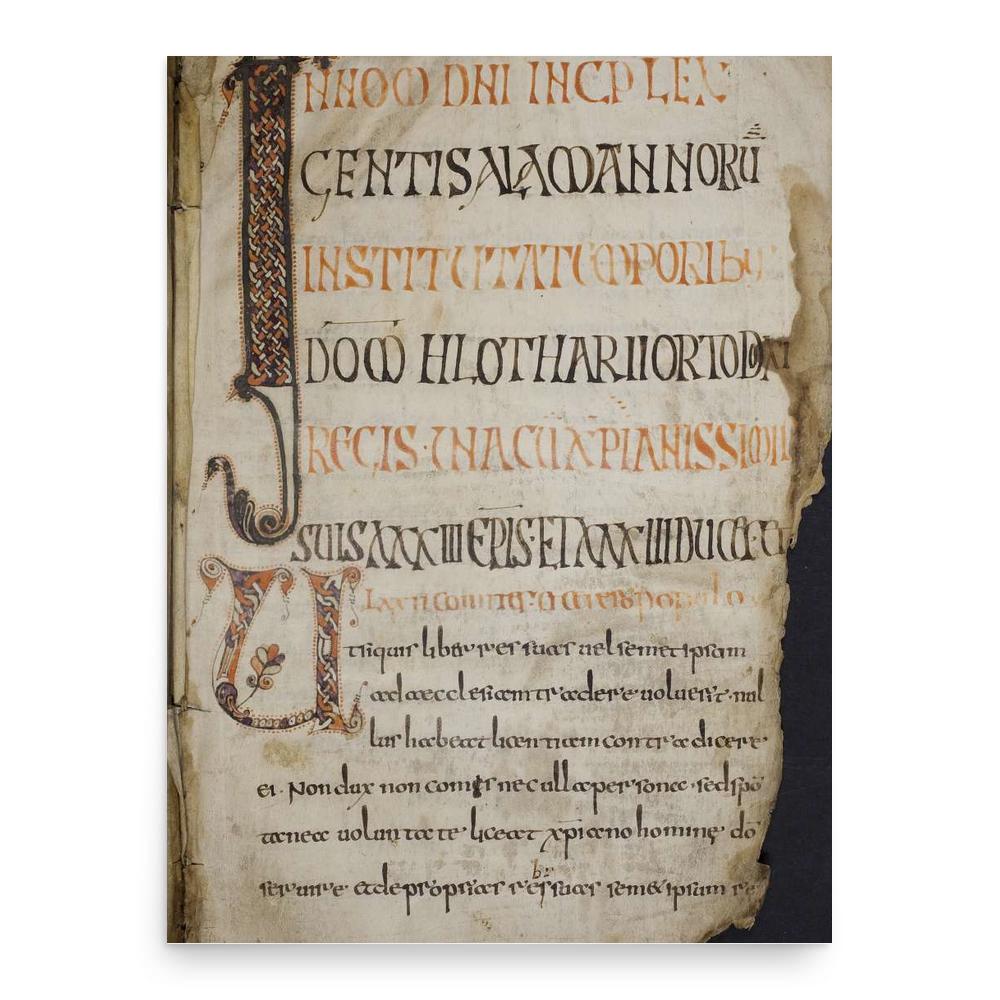 INNOM DNI INCP LEX
GENTIS ALAMANNORŪ
INSTITUTA TEMPORIBUS
DOM HLOTHARII ORTODOXI
REGIS · UNA CŪ XPIANISSIMIS
SUIS XXXIII EPIS · ET XXXIIII DUCB · ET
LXXII COMITB · CETERO POPULO
Utiquis liber res suas uel semetipsam
ad aecclesiam tradere uoluerit · nul
lus habeat licentiam contradicere
ei · Non dux non comis nec ulla persona · sed spō
tanea uoluntate · liceat xpiano homine dō
seruire · et de proprias res suas semet ipsam re